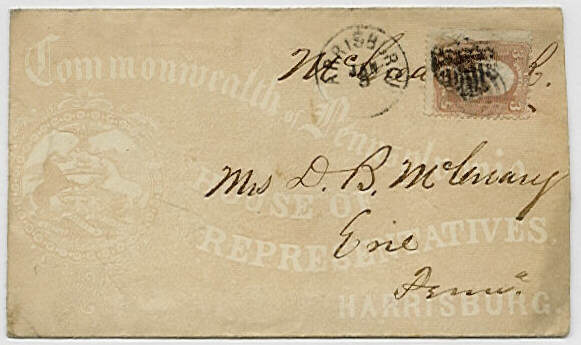 Commonwealth of Pennsylvania
HOUSE OF
REPRESENTATIVES.
HARRISBURG.
HARRISBURG
JAN
3
3
Mrs D. B. McCreary
Erie
Penna